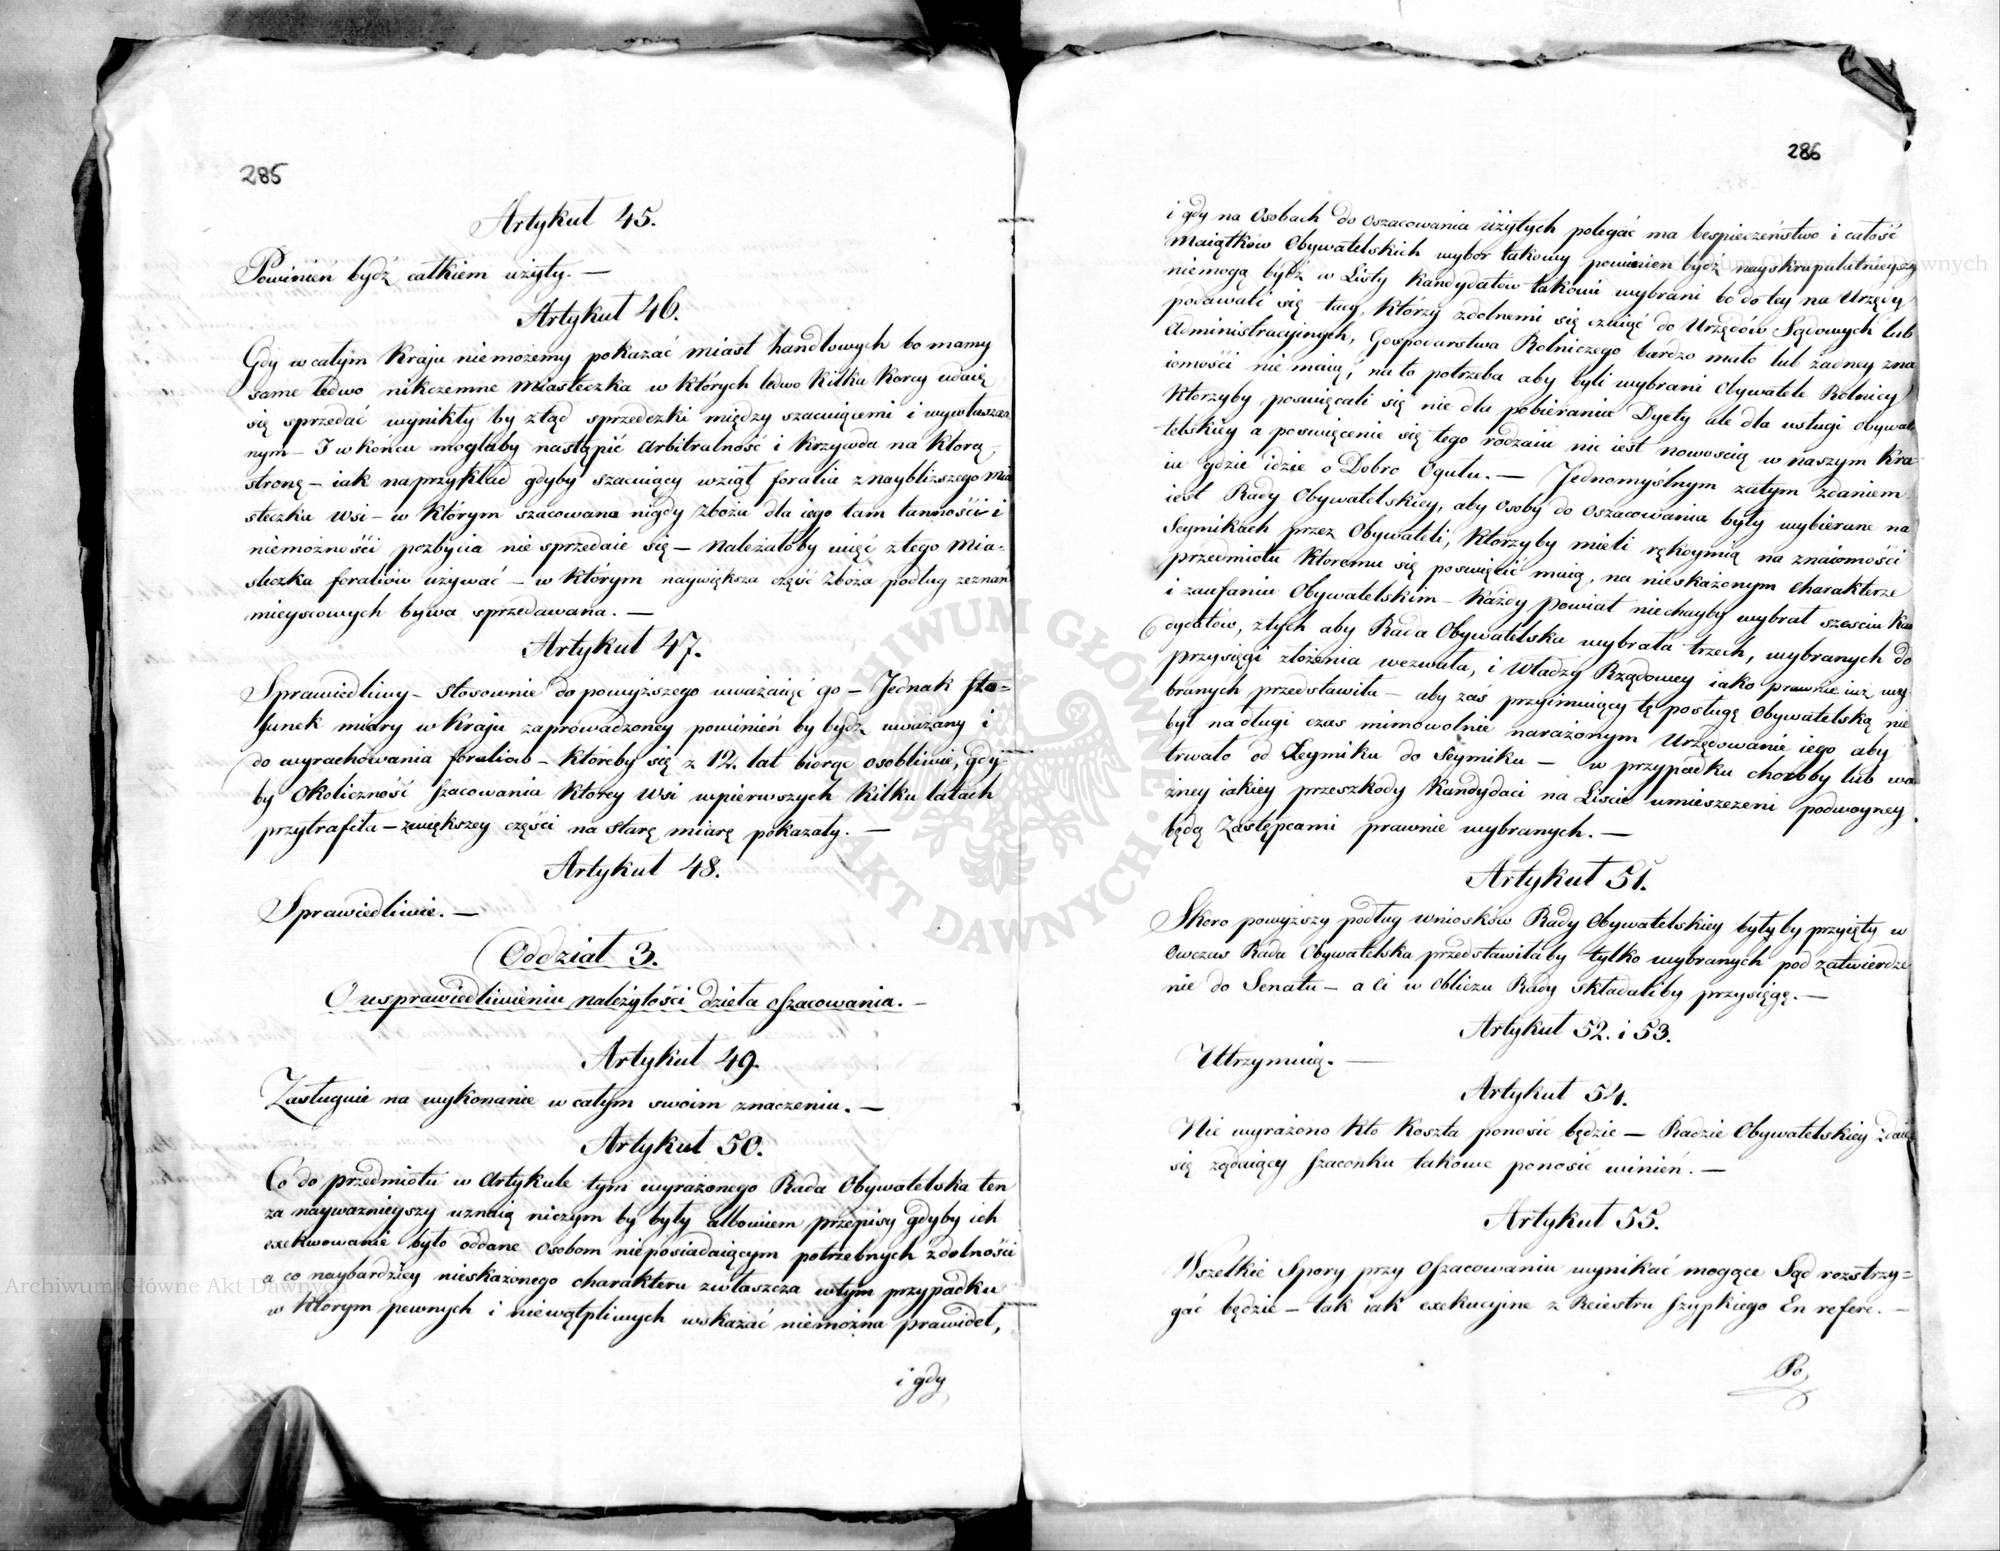 285
Artykuł 45.
Powinień bydź całkiem użyty. —
Artykuł 46.
Gdy w całym Kraju niemożemy pokazać miast handlowych bo mamy
same ledwo nikczemne Miasteczka w których ledwo kilka Korcy udaię
się sprzedać wynikły by ztąd sprzeczki między szacuiącemi i wywłaszczo
nym — I w końcu mogłaby nastąpić arbitralność i Krzywda na którą
stronę — iak naprzykład gdyby szacuiący wziął foralia z naybliższego Mia
steczka Wsi — w którym szacowana nigdy Zboża dla iego tam tanności i
niemożności pozbycia nie sprzedaie się — Należałoby więc z tego Mia-
steczka foraliów używać — w którym naywiększa część Zboża podług zeznań
mieyscowych bywa sprzedawana. —
Artykuł 47.
Sprawiedliwy — stosownie do powyższego uważaiąc go — Jednak sto=
sunek miary w Kraju zaprowadzoney powinień by bydź uważany i
do wyrachowania foraliów — któreby się z 12. lat biorąc osobliwie, gdy-
by okoliczność szacowania którey Wsi w pierwszych kilku latach
przytrafiła — zwiększey części na starę miarę pokazały. —
Artykuł 48.
Sprawiedliwie. —
Oddział 3.
O usprawiedliwieniu należytości dzieła szacowania. —
Artykuł 49.
Zasługuie na wykonanie w całym swoim znaczeniu. —
Artykuł 50.
Co do przedmiotu w Artykule tym wyrażonego Rada Obywatelska ten
za nayważnieyszy uznaią niczym by były albowiem przepisy gdyby ich
exekwowanie było oddane osobom nieposiadaiącym potrzebnych zdolności
a co naybardziey nieskażonego charakteru zwłaszcza w tym przypadku
w którym pewnych i niewątpliwych wskazać niemożna prawideł,
i gdy
286
i gdy na Osobach do oszacowania użytych polegać ma bespieczeństwo i całość
Maiątków Obywatelskich wybor takowy powinien bydź nayskrupulatnieyszy
niemogą bydź w Listy Kandydatów takowi wybrani bo do tey na Urzędy
podawali się tacy, którzy zdolnemi się czuiąc do Urzędów Sądowych lub
administracyinych, Gospodarstwa Rolniczego bardzo mało lub żadney zna
iomości nie maią; na to potrzeba aby byli wybrani Obywatele Rolnicy
którzyby poswięcali się nie dla pobierania Dyety ale dla usługi obywa
telskiey a poswięcenie się tego rodzaiu nie iest nowoscią w naszym Kra-
iu gdzie idzie o Dobro Ogułu. — Jednomyślnym zatym zdaniem
iest Rady Obywatelskiey, aby osoby do oszacowania były wybierane na
Seymikach przez Obywateli, którzyby mieli rękoymią na znaiomości
przedmiotu któremu się poswięcić maią, na nieskażonym charakterze
i zaufaniu Obywatelskim — Każdy powiat niechayby wybrał szesciu Kan
dydatów, z tych aby Rada Obywatelska wybrała trzech, wybranych do
przysięgi złożenia wezwała, i Władzy Rządowey iako prawnie iuż wy
branych przedstawiła — aby zas przyimuiący tę posługę Obywatelską nie
był na długi czas mimowolnie narażonym Urzędowanie iego aby
trwało od Seymiku do Seymiku — w przypadku choroby lub wa
żney iakiey przeszkody Kandydaci na Liscie umieszczeni podwoyney
będą Zastępcami prawnie wybranych. —
Artykuł 51.
Skoro powyższy podług wniosków Rady Obywatelskiey byłyby przyięty w
owczas Rada Obywatelska przedstawiłaby tylko wybranych pod zatwierdze
nie do Senatu — a ci w obliczu Rady składaliby przysięgę. —
Artykuł 52. i 53.
Utrzymuią. —
Artykuł 54.
Nie wyrażono kto koszta ponosić będzie — Radzie Obywatelskiey zdaie
się żądaiący szacunku takowe ponosić winień. —
Artykuł 55.
Wszelkie Spory przy oszacowaniu wynikać mogące Sąd rozstrzy=
gać będzie — tak iak exekucyine z Reiestru szypkiego En refere. —
Po
ARCHIWUM GŁÓWNE AKT DAWNYCH
Archiwum Główne Akt Dawnych
Archiwum Główne Akt Dawnych
Archiwum Główne Akt Dawnych